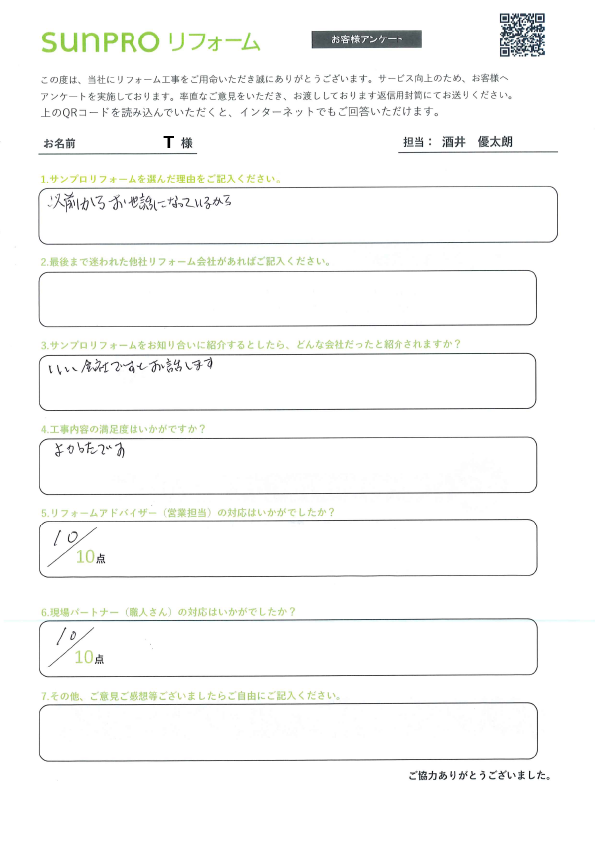 SUNPRO リフォーム
お客様アンケート
この度は、当社にリフォーム工事をご用命いただき誠にありがとうございます。サービス向上のため、お客様へ
アンケートを実施しております。率直なご意見をいただき、お渡ししております返信用封筒にてお送りください。
上のQRコードを読み込んでいただくと、インターネットでもご回答いただけます。
お名前 T 様
担当： 酒井 優太朗
1.サンプロリフォームを選んだ理由をご記入ください。
以前からお世話になっているから
2.最後まで迷われた他社リフォーム会社があればご記入ください。
3.サンプロリフォームをお知り合いに紹介するとしたら、どんな会社だったと紹介されますか？
いい会社ですとお話します
4.工事内容の満足度はいかがですか？
よかったです
5.リフォームアドバイザー（営業担当）の対応はいかがでしたか？
10/10点
6.現場パートナー（職人さん）の対応はいかがでしたか？
10/10点
7.その他、ご意見ご感想等ございましたらご自由にご記入ください。
ご協力ありがとうございました。